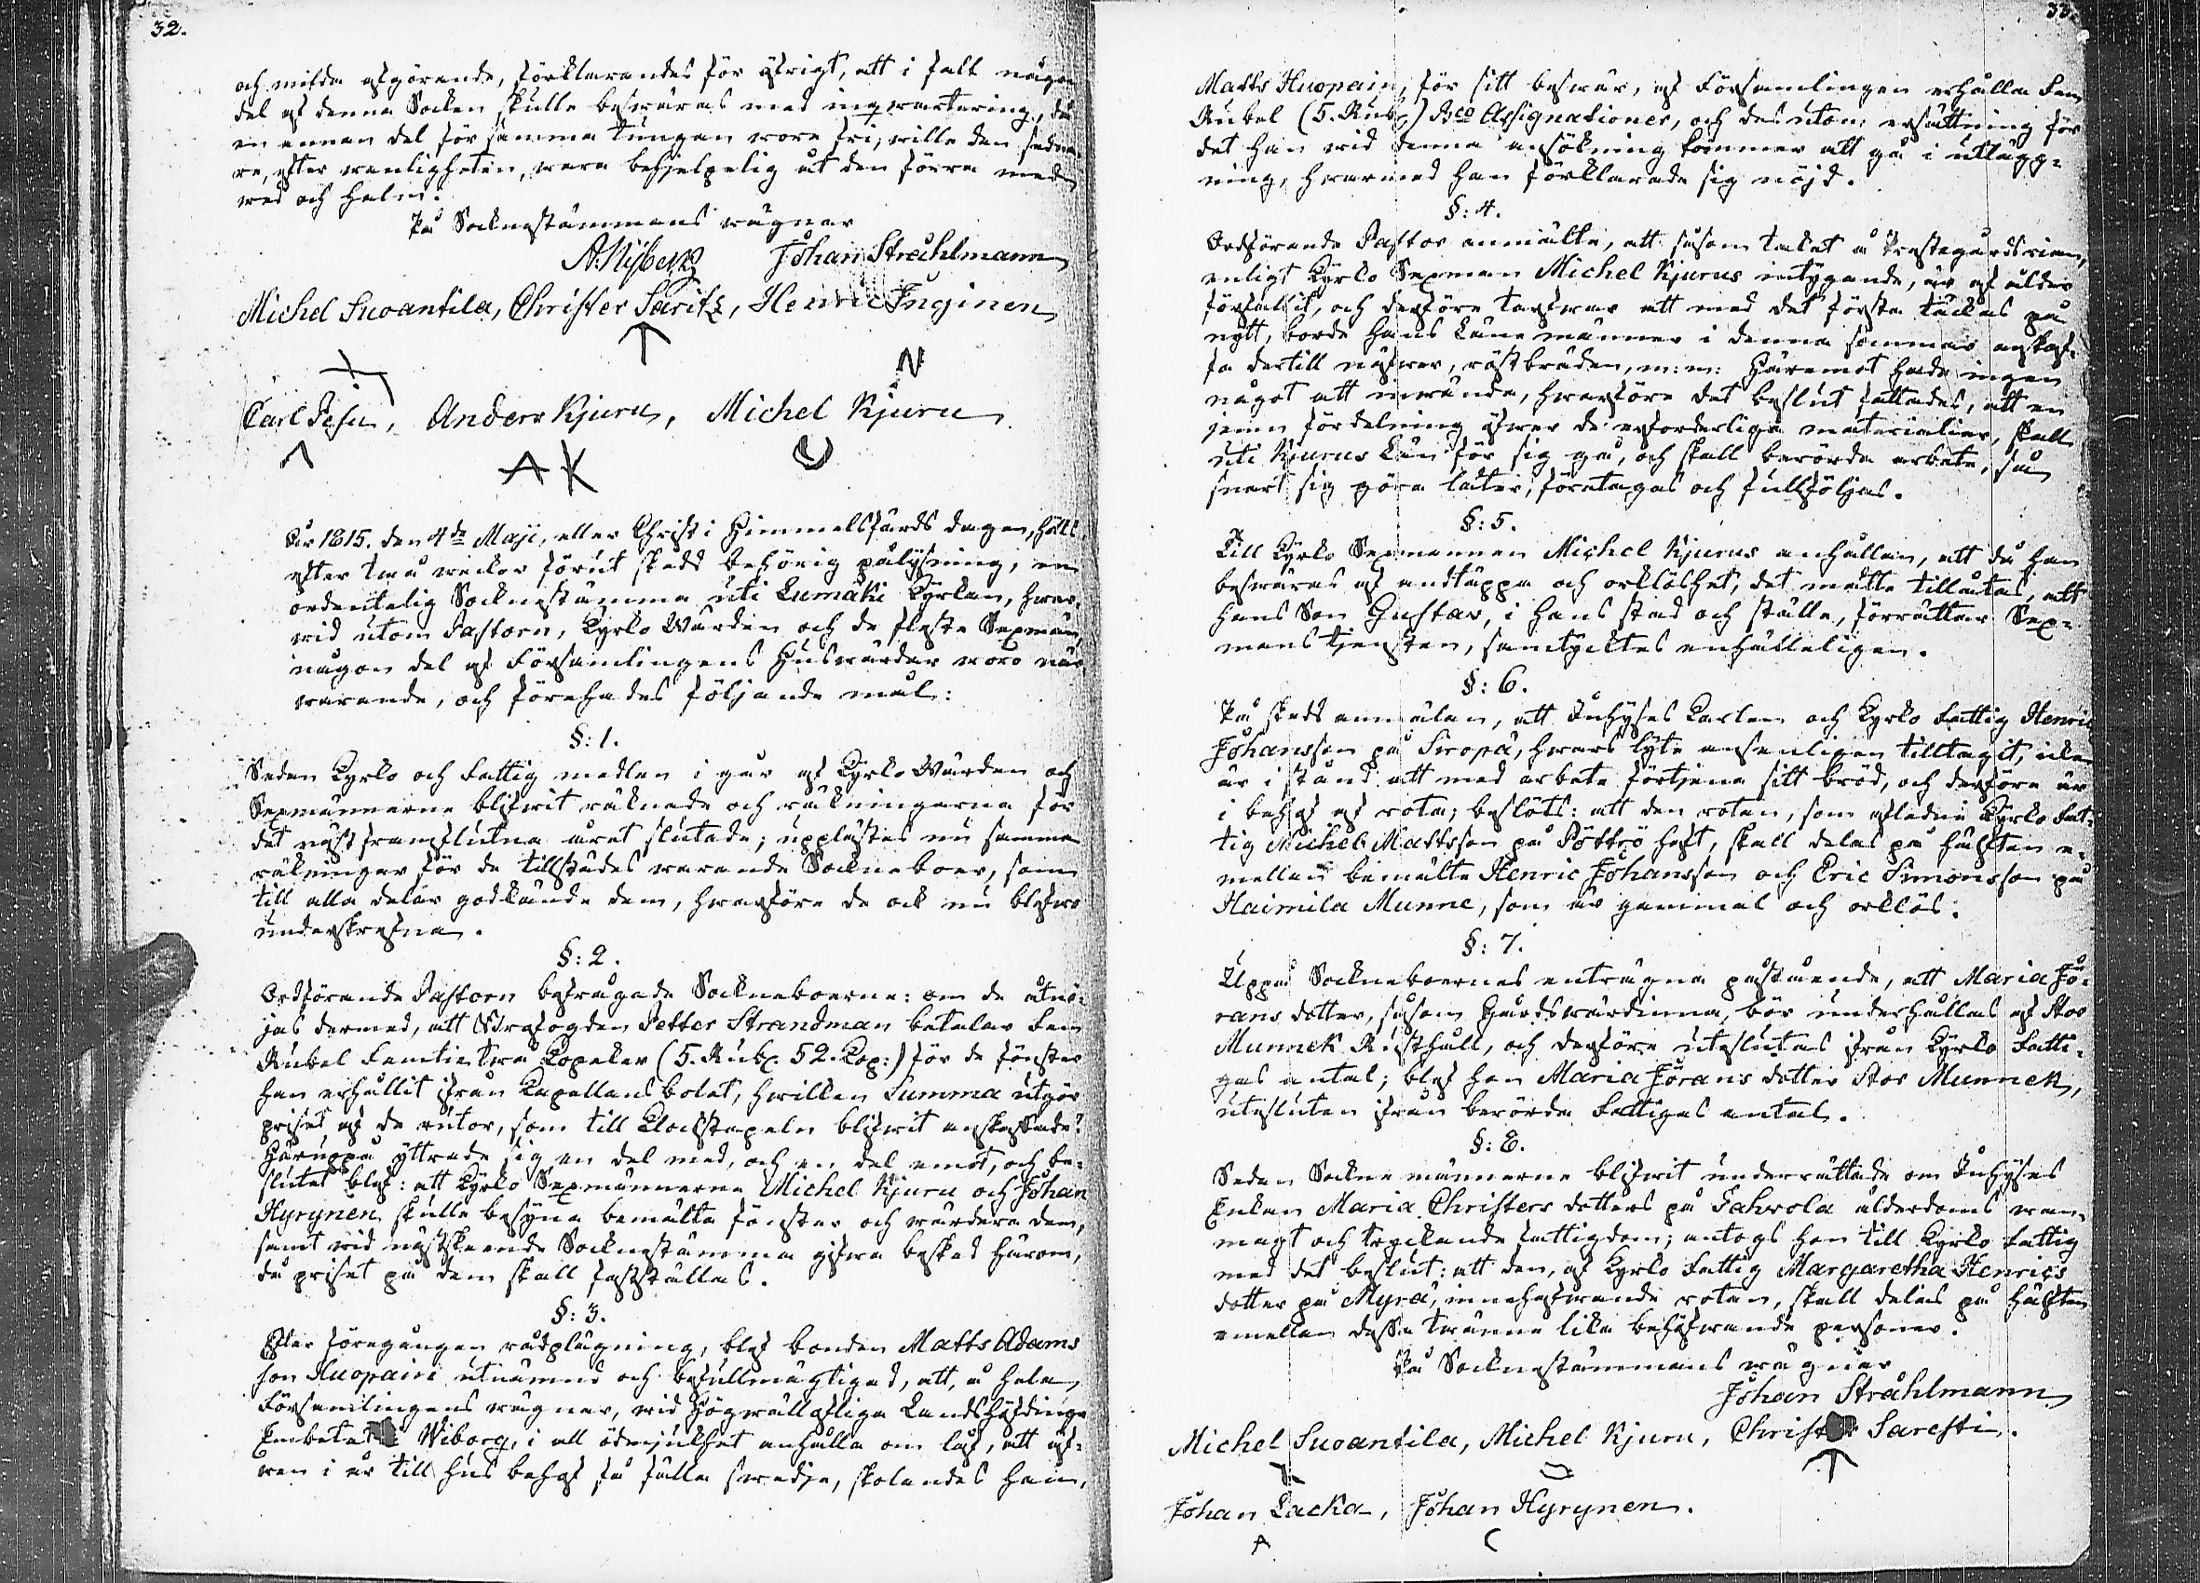 32.
och milda afgörande, förklarandes för öfrigt, att i fall någon
del af denna Socken skulle beswäras med inqwartering, då
en annan del för samma tungan wore fri, wille den sedna-
re, efter wanligheten, wara behjelpelig åt den förra med
wed och halm.
På Socknestämmans wägnar
A. Nyberg Johan Strahlmann
Michel Suoantila, Christer Saritz, Henric Inginen
N
Carl Pesu, Anders Kjuru, Michel Kjuru
A K
År 1815. den 4de Maji, eller Christi Himmelsfärds dagen, hölts
efter twå weckor förut skedd behörig pålysning, en
ordentelig Socknestämma uti Lumäki Kyrkan, hwar-
wid utom Pastorn, Kyrko Wärden och de fleste Sexmän,
någon del af Församlingens Huswärdar woro när-
warande, och förehades följande mål:
§: 1.
Sedan Kyrko och Fattig medlen i går af Kyrko Wärden och
Sexmännerne blifwit räknade och räkningarna för
det näst framflutna året slutade; upplästes nu samma
räkningar för de tillstädes warande Sockneboer, som
till alla delar godkände dem, hwarföre de ock nu blefwo
underskrefna.
§: 2.
Ordförande Pastorn befrågade Sockneboerne: om de åtnö-
jas dermed, att Strafogden Petter Strandman betalar Fem
Rubel Femtie twå Kopeker (5. Rub. 52. Kop:) för de fönster
han erhållit ifrån Kapellans bolet, hwilken Summa utgör
priset af de rutor, som till Klockstapeln blifwit anskaffade?
Häruppå yttrade sig en del med, och en del emot, och be-
slutet blef: att Kyrko Sexmännerne Michel Kjuru och Johan
Hyrynen skulle besyna bemälte fönster och wärdera dem,
samt wid nästskeende Socknestämma gifwa besked härom,
då priset på dem skall fastställas.
§: 3.
Efter föregången rådplägning, blef bonden Matts Adams
son Huopain utnämnd och befullmägtigad, att, å hela
Församlingens wägnar, wid Högwällofliga Landshöfdinge
Embetet i Wiborg, i all ödmjukhet anhålla om lof, att äf-
wen i år till hus behof få fälla swedje, skolandes han,
33.
Matts Huopain, för sitt beswär, af Församlingen erhålla Fem
Rubel (5. Rub.) Bco Assignationer, och des utom ersättning för
det han wid denna ansökning kommer att gå i utlägg-
ning, hwarmed han förklarade sig nöjd.
§: 4.
Ordförande Pastor anmälte, att såsom taket å Prestegårdsrian,
enligt Kyrko Sexman Michel Kjurus intygande, är af ålder
förfallit, och derföre tarfwar att med det första täckas på
nytt, borde hans Läne männer i denna sommar anskaf-
fa dertill näfwer, röstbräden, m: m: Häremot hade ingen
något att inwända, hwarföre det beslut fattades, att en
jemn fördelning öfwer de erforderliga materialier, skall
uti Kjurus Län för sig gå, och skall berörde arbete, så
snart sig göra låter, företagas och fullföljas.
§: 5.
Till Kyrko Sexmannen Michel Kjurus anhållan, att då han
beswäras af andtäppa och orklöshet, det måtte tillåtas, att
hans Son Gustav, i hans stad och ställe, förrättar Sex-
mans tjensten, samtycktes enhälleligen.
§: 6.
På skedd anmälan, att Inhyses Karlen och Kyrko Fattig Henric
Johansson på Siropä, hwars lyte ansenligen tilltagit, icke
är i stånd att med arbete förtjena sitt bröd, och derföre är
i behof af rota; beslöts: att den roten, som afledne Kyrko Fat-
tig Michel Mattsson på Pöttrö haft, skall delas på hälften e-
mellan bemälte Henric Johansson och Eric Simonsson på
Haimila Munne, som är gammal och orklös.
§: 7.
Uppå Sockneboernes enträgna påstående, att Maria Jö-
rans dotter, såsom Gårdswärdinna, bör underhållas af Stor
Munnek Rusthåll, och derföre uteslutas ifrån Kyrko Fatti-
gas antal; blef hon Maria Jörans dotter Stor Munnek,
utesluten ifrån berörde Fattigas antal.
§: 8.
Sedan Sockne männerne blifwit underrättade om Inhyses
Enkan Maria Christers dotters på Fahrola ålderdoms wan-
magt och tryckande fattigdom; antogs hon till Kyrko Fattig
med det beslut: att den, af Kyrko Fattig Margaretha Henrics
dotter på Myrä, innehafwande roten, skall delas på hälften
emellan desse twänne lika behöfwande personer.
På Socknestämmans wägnar
Johan Stråhlmann
Michel Suoantila, Michel Kjuru, Christer Saresti.
Johan Lacka, Johan Hyrynen.